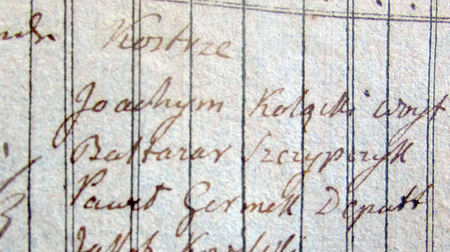 Kostrze
Joachym Kolącki woyt
Baltazar Szczypczyk
Paweł Germek Deputt